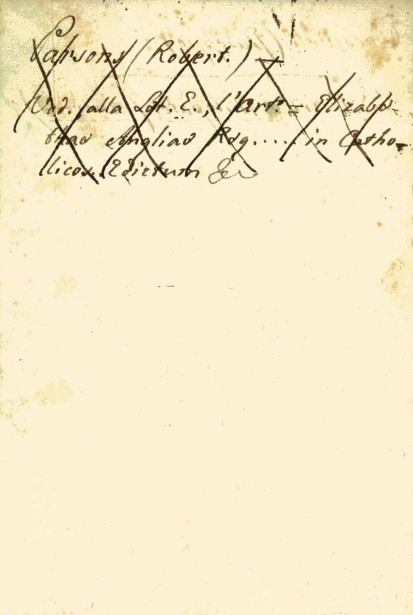 Parsons (Robert.) =
Ved. alla Let. E., l'art: = Elizabe-
thae Angliae Reg.... in Catho-
licos Edictum &c